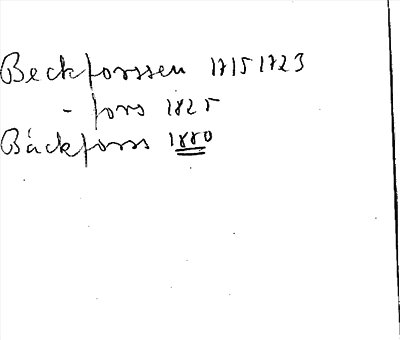 Beckforssen 1715 1723
- fors 1825
Bäckforss 1880